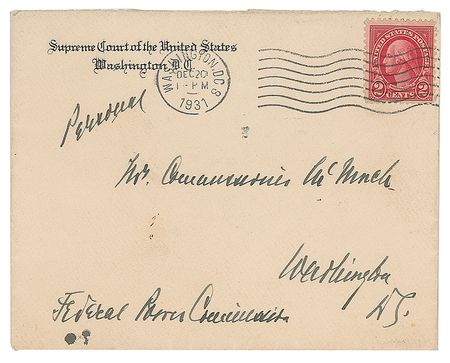 Supreme Court of the United States
Washington, D.C.
WASHINGTON, D.C. 8
DEC 20
1 - PM
1931
UNITED STATES POSTAGE
2 CENTS 2
Personal
Washington
D.C.
Federal Power Commission